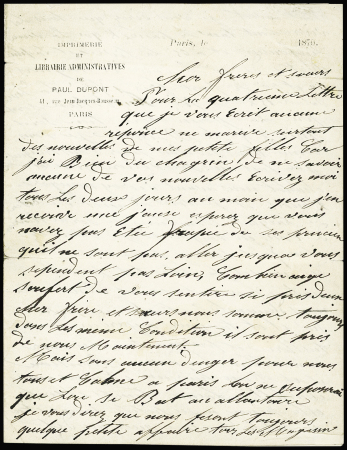 IMPRIMERIE
ET
LIBRAIRIE ADMINISTRATIVES
DE
PAUL DUPONT
41, rue Jean-Jacques-Rousseau
PARIS
Paris, le 187
Cher freres et sœurs
Pour la quatrieme lettre
que je vous ecrit aucune
reponce ne marive surtout
des nouvelles de mes petite filles Car
jai Bien du chagrin de ne savoir
aucune de vos nouvelles Ecrivez moi
tous les deux jours au moin que jen
recoive une j'ause esperer que vous
navez pas Ete de ses
quil ne sont pas aller jusqua vous
sependent pas loin, Combien ange
soufert de vous sentire si pres dun
cher frere et sœurs nous somme toujours
dans les meme Condition il sont près
de nous Maintenent
Mais sans aucun danger pour nous
tous et Calme a paris on ne
que l'on se Bat au
je vous direz que nous feront toujours
quelque petite affaire tous les Magasin